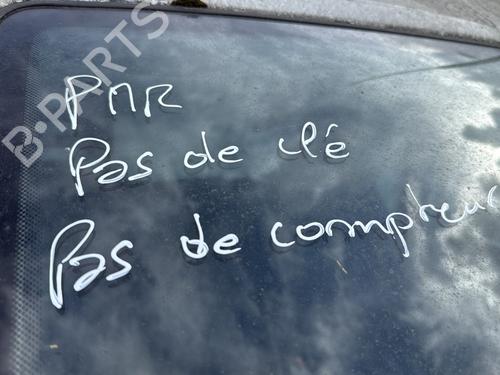 B-PARTS
PMR
Pas de clé
Pas de compteur